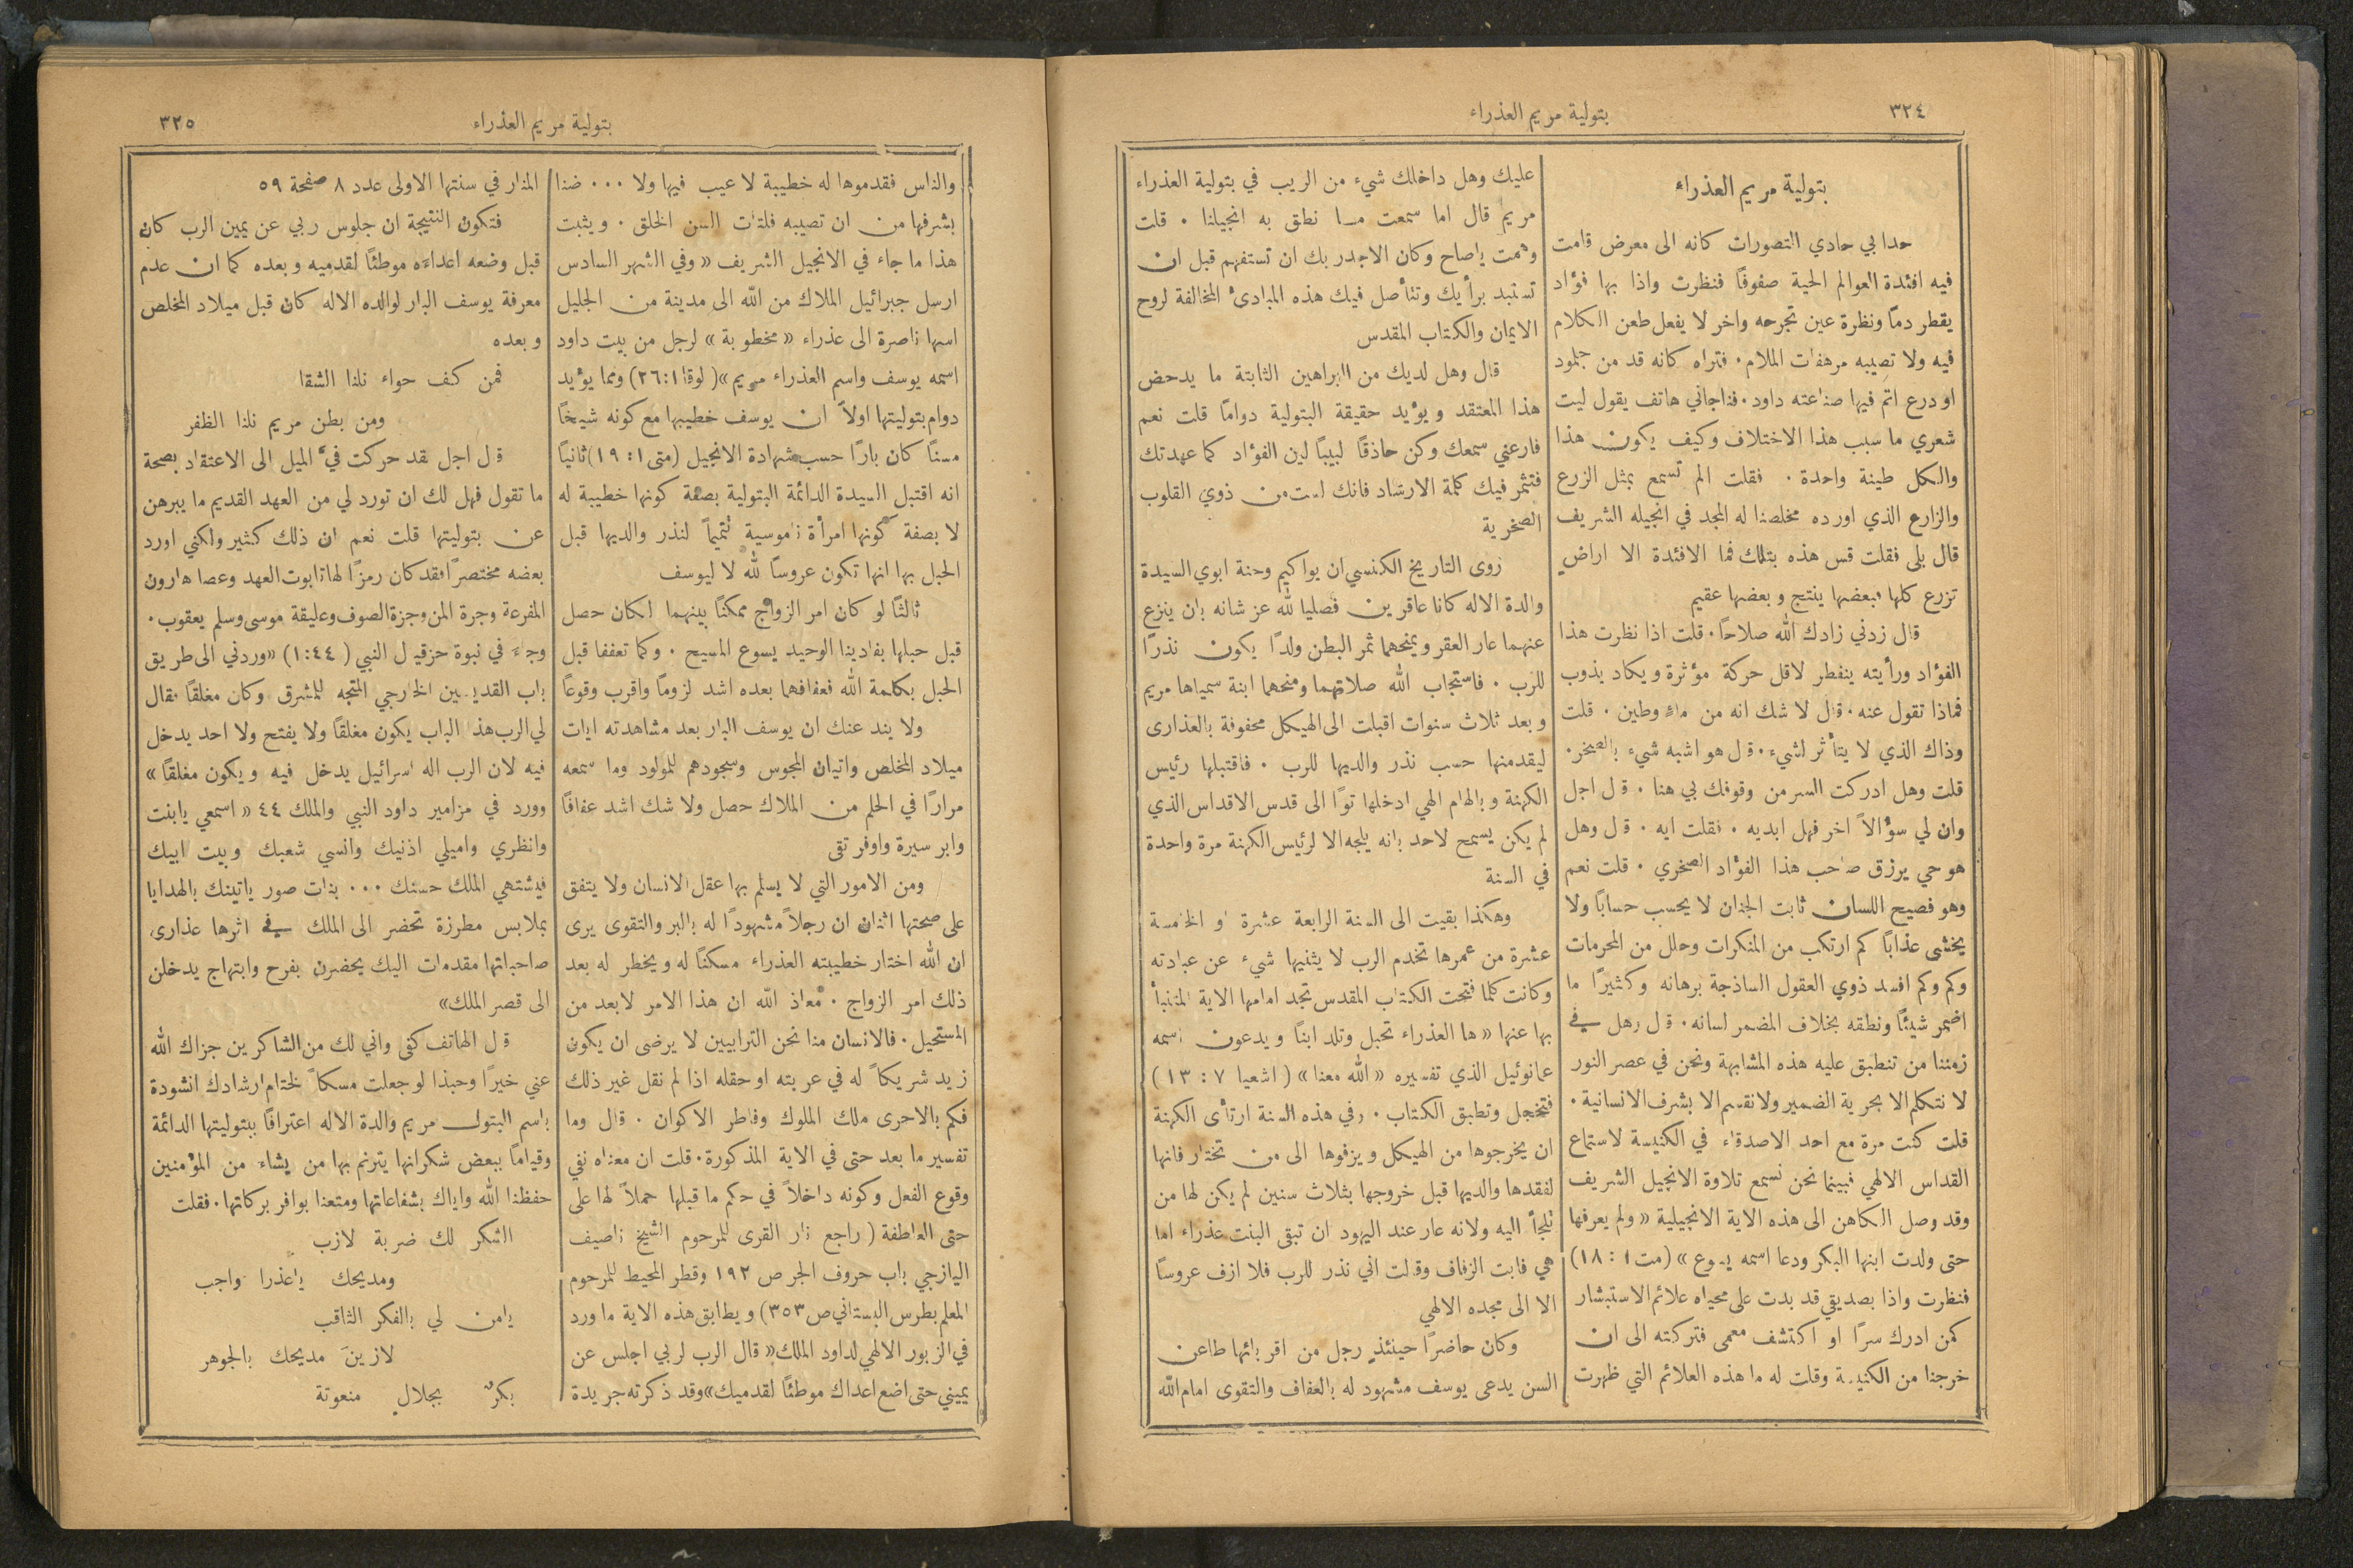 ٣٢٤
بتولية مريم العذراء
بتولية مريم العذراء
حدا بي حادي التصورات كانه الى معرض قامت
فيه افئدة العوالم الحية صفوفًا فنظرت واذا بها فؤاد
يقطر دمًا ونظرة عين تجرحه واخر لا يفعل طعن الكلام
فيه ولا تصيبه مرهفات الملام. فتراه كانه قد من جلمود
او درع اتم فيها صناعته داود. فناجاني هاتف يقول ليت
شعري ما سبب هذا الاختلاف وكيف يكون هذا
والكل طينة واحدة . فقلت الم تسمع بمثل الزرع
والزارع الذي اورده مخلصنا له المجد في انجيله الشريف
قال بلى فقلت قس هذه بتلك فما الافئدة الا اراضٍ
تزرع كلها فبعضها ينتج وبعضها عقيم
قال زدني زادك الله صلاحًا. قلت اذا نظرت هذا
الفؤاد ورأيته ينفطر لاقل حركة مؤثرة ويكاد يذوب
فماذا تقول عنه. قال لا شك انه من ماءٍ وطين . قلت
وذاك الذي لا يتأثر لشيء. قال هو اشبه شيء بالصخر.
قلت وهل ادركت السر من وقوفك بي هنا . قال اجل
وان لي سؤالاً اخر فهل ابديه . فقلت ايه . قال وهل
هو حي يرزق صاحب هذا الفؤاد الصخري . قلت نعم
وهو فصيح اللسان ثابت الجنان لا يحسب حسابًا ولا
يخشى عذابًا كم ارتكب من المنكرات وحلل من المحرمات
وكم وكم افسد ذوي العقول الساذجة برهانه وكثيرًا ما
اضمر شيئًا ونطقه بخلاف المضمر لسانه. قال وهل في
زمننا من تنطبق عليه هذه المشابهة ونحن في عصر النور
لا نتكلم الا بحرية الضمير ولا نقسم الا بشرف الانسانية.
قلت كنت مرة مع احد الاصدقاء في الكنيسة لاستماع
القداس الالهي فبينما نحن نسمع تلاوة الانجيل الشريف
وقد وصل الكاهن الى هذه الاية الانجيلية «ولم يعرفها
حتى ولدت ابنها البكر ودعا اسمه يسوع» (مت ١ : ١٨)
فنظرت واذا بصديقي قد بدت على محياه علائم الاستبشار
كمن ادرك سرًا او اكتشف معمى فتركته الى ان
خرجنا من الكنيسة وقلت له ما هذه العلائم التي ظهرت
عليك وهل داخلك شيء من الريب في بتولية العذراء
مريم قال اما سمعت ما نطق به انجيلنا . قلت
وهمت ياصاح وكان الاجدر بك ان تستفهم قبل ان
تستبد برأيك وتتأصل فيك هذه المبادئ المخالفة لروح
الايمان والكتاب المقدس
قال وهل لديك من البراهين الثابتة ما يدحض
هذا المعتقد ويؤيد حقيقة البتولية دوامًا قلت نعم
فارعني سمعك وكن حاذقًا لبيبًا لين الفؤاد كما عهدتك
فتثمر فيك كلمة الارشاد فانك لست من ذوي القلوب
الصخرية
روى التاريخ الكنسي ان يواكيم وحنة ابوي السيدة
والدة الاله كانا عاقرين فصليا لله عز شانه بان ينزع
عنهما عار العقر ويمنحهما ثمر البطن ولدًا يكون نذرًا
للرب . فاستجاب الله صلاتهما ومنحهما ابنة سمياها مريم
وبعد ثلاث سنوات اقبلت الى الهيكل محفوفة بالعذارى
ليقدمنها حسب نذر والديها للرب . فاقتبلها رئيس
الكهنة وبالهام الهي ادخلها توًا الى قدس الاقداس الذي
لم يكن يسمح لاحد بانه يلجه الا لرئيس الكهنة مرة واحدة
في السنة
وهكذا بقيت الى السنة الرابعة عشرة او الخامسة
عشرة من عمرها تخدم الرب لا يثنيها شيء عن عبادته
وكانت كلما فتحت الكتاب المقدس تجد امامها الاية المتنبأ
بها عنها «ها العذراء تحبل وتلد ابنًا ويدعون اسمه
عمانوئيل الذي تفسيره «الله معنا» (اشعيا ٧ : ١٣)
فتخجل وتطبق الكتاب . وفي هذه السنة ارتأى الكهنة
ان يخرجوها من الهيكل ويزفوها الى من تختار فانها
لفقدها والديها قبل خروجها بثلاث سنين لم يكن لها من
تلجأ اليه ولانه عار عند اليهود ان تبقى البنت عذراء اما
هي فابت الزفاف وقالت اني نذر للرب فلا ازف عروسًا
الا الى مجده الالهي
وكان حاضرًا حينئذٍ رجل من اقربائها طاعن
السن يدعى يوسف مشهود له بالعفاف والتقوى امام الله
بتولية مريم العذراء
٣٢٥
والناس فقدموها له خطيبة لا عيب فيها ولا ... ضنا
بشرفها من ان تصيبه فلتات السن الخلق . ويثبت
هذا ما جاء في الانجيل الشريف «وفي الشهر السادس
ارسل جبرائيل الملاك من الله الى مدينة من الجليل
اسمها ناصرة الى عذراء «مخطوبة» لرجل من بيت داود
اسمه يوسف واسم العذراء مريم» (لوقا ١ : ٢٦) ومما يؤيد
دوام بتوليتها اولاً ان يوسف خطيبها مع كونه شيخًا
مسنًا كان بارًا حسب شهادة الانجيل (متى ١ : ١٩) ثانيًا
انه اقتبل السيدة الدائمة البتولية بصفة كونها خطيبة له
لا بصفة كونها امرأة ناموسية تتميمًا لنذر والديها قبل
الحبل بها انها تكون عروسًا لله لا ليوسف
ثالثًا لو كان امر الزواج ممكنًا بينهما لكان حصل
قبل حبلها بفادينا الوحيد يسوع المسيح . وكما تعففا قبل
الحبل بكلمة الله فعفافهما بعده اشد لزومًا واقرب وقوعًا
ولا يند عنك ان يوسف البار بعد مشاهدته ايات
ميلاد المخلص واتيان المجوس وسجودهم للمولود وما سمعه
مرارًا في الحلم من الملاك حصل ولا شك اشد عفافًا
وابر سيرة واوفر تقى
ومن الامور التي لا يسلم بها عقل الانسان ولا يتفق
على صحتها اثنان ان رجلاً مشهودًا له بالبر والتقوى يرى
ان الله اختار خطيبته العذراء مسكنًا له ويخطر له بعد
ذلك امر الزواج . معاذ الله ان هذا الامر لابعد من
المستحيل. فالانسان منا نحن الترابيين لا يرضى ان يكون
زيد شريكاً له في عربته او حقله اذا لم نقل غير ذلك
فكم بالاحرى ملك الملوك وفاطر الاكوان . قال وما
تفسير ما بعد حتى في الاية المذكورة. قلت ان معناه نفي
وقوع الفعل وكونه داخلاً في حكم ما قبلها حملاً لها على
حتى العاطفة (راجع نار القرى للمرحوم الشيخ ناصيف
اليازجي باب حروف الجر ص ١٩٢ وقطر المحيط للمرحوم
المعلم بطرس البستاني ص ٣٥٣) ويطابق هذه الاية ما ورد
في الزبور الالهي لداود الملك «قال الرب لربي اجلس عن
يميني حتى اضع اعداك موطئًا لقدميك» وقد ذكرته جريدة
المنار في سنتها الاولى عدد ٨ صفحة ٥٩
فتكون النتيجة ان جلوس ربي عن يمين الرب كان
قبل وضعه اعداءه موطئًا لقدميه وبعده كما ان عدم
معرفة يوسف البار لوالده الاله كان قبل ميلاد المخلص
وبعده
فمن كف حواء نلنا الشقا
ومن بطن مريم نلنا الظفر
قال اجل لقد حركت فيَّ الميل الى الاعتقاد بصحة
ما تقول فهل لك ان تورد لي من العهد القديم ما يبرهن
عن بتوليتها قلت نعم ان ذلك كثير ولكني اورد
بعضه مختصرًا فقد كان رمزًا لها تابوت العهد وعصا هارون
المفرعة وجرة المن وجزة الصوف وعليقة موسى وسلم يعقوب.
وجاءَ في نبوة حزقيال النبي (٤٤ : ١) «وردني الى طريق
باب القديسين الخارجي المتجه للمشرق وكان مغلقًا فقال
لي الرب هذا الباب يكون مغلقًا ولا يفتح ولا احد يدخل
فيه لان الرب اله اسرائيل يدخل فيه ويكون مغلقًا»
وورد في مزامير داود النبي والملك ٤٤ «اسمعي يابنت
وانظري واميلي اذنيك وانسي شعبك وبيت ابيك
فيشتهي الملك حسنك ... بنات صور ياتينك بالهدايا
بملابس مطرزة تحضر الى الملك في اثرها عذارى
صاحباتها مقدمات اليك يحضرن بفرح وابتهاج يدخلن
الى قصر الملك»
قال الهاتف كفى واني لك من الشاكرين جزاك الله
عني خيرًا وحبذا لو جعلت مسكاً لختام ارشادك انشودة
باسم البتول مريم والدة الاله اعترافًا ببتوليتها الدائمة
وقيامًا ببعض شكرانها يترنم بها من يشاء من المؤمنين
حفظنا الله واياك بشفاعاتها ومتعنا بوافر بركاتها. فقلت
الشكر لك ضربة لازب
ومديحك ياعذرا واجب
يامن لي بالفكر الثاقب
لازينَ مديحك بالجوهر
بكرٌ بجلالٍ منعوتة